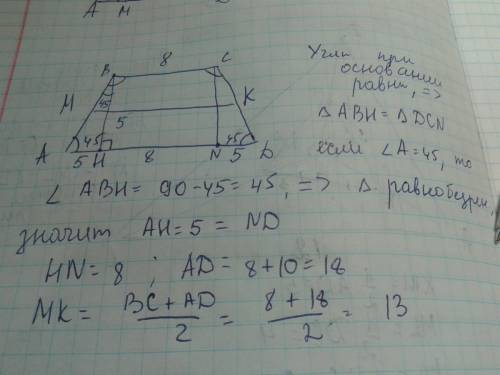 A M D
8
B C
M 45 K
5
A 45 45 D
5 H 8 N 5
Углы при
основании
равны, =>
△ABH = △DCN
если ∠A=45, то
∠ ABH = 90-45=45, => △ равнобедрен,
значит AH=5 = ND
HN=8 ; AD= 8+10=18
MK= BC+AD/2 = 8+18/2 = 13